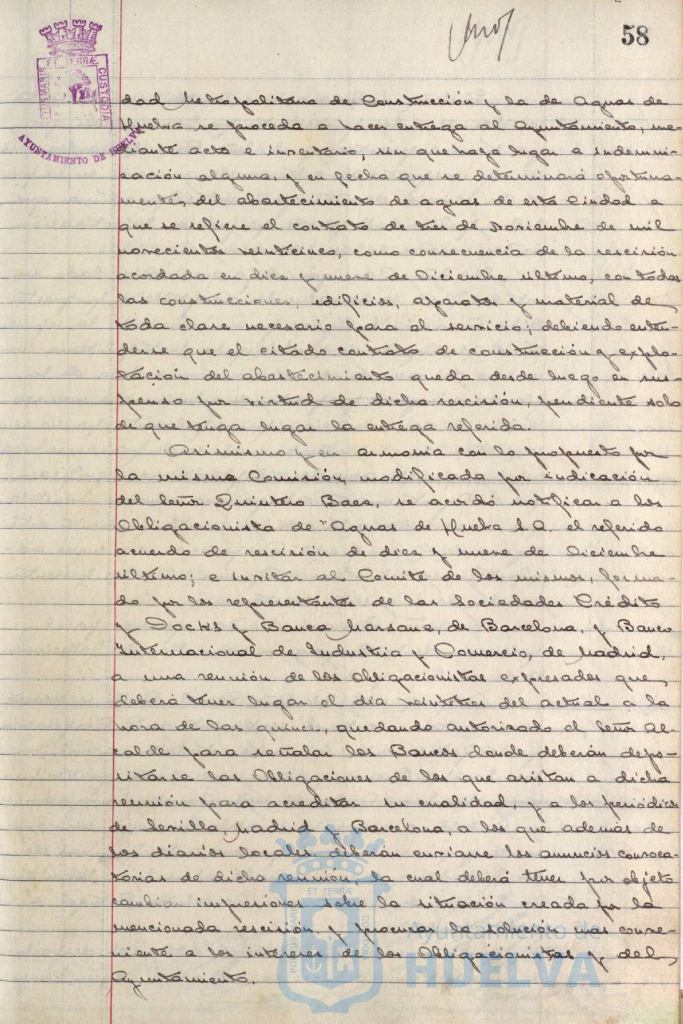 58
PORTUS MARIS ET TERRÆ CUSTODIA
AYUNTAMIENTO DE HUELVA
dad Metropolitana de Construcción y la de Aguas de
Huelva se proceda a hacer entrega al Ayuntamiento, me-
diante acta e inventario, sin que haya lugar a indemni-
zación alguna, y en fecha que se determinará oportuna-
mente, del abastecimiento de aguas de esta Ciudad a
que se refiere el contrato de tres de Noviembre de mil
novecientos veinticinco, como consecuencia de la rescisión
acordada en diez y nueve de Diciembre último, con todas
las construcciones, edificios, aparatos y material de
toda clase necesario para al servicio; debiendo enten-
derse que el citado contrato de construcción y explo-
tación del abastecimiento queda desde luego en sus-
penso por virtud de dicha rescisión, pendiente solo
de que tenga lugar la entrega referida.
Asimismo y en armonia con lo propuesto por
la misma Comisión, modificada por indicación
del Señor Quintero Baez, se acordó notificar a los
Obligacionista de "Aguas de Huelva S.A. el referido
acuerdo de rescisión de diez y nueve de Diciembre
último; e invitar al Comité de los mismos, forma-
do por los representantes de las Sociedades Crédito
y Docks y Banca Marsans, de Barcelona, y Banco
Internacional de Industria y Comercio, de Madrid,
a una reunión de los Obligacionistas expresados que
deberá tener lugar el dia veintitres del actual a la
hora de las quince, quedando autorizado el Señor Al-
calde para señalar los Bancos donde deberán depo-
sitarse las Obligaciones de los que asistan a dicha
reunión para acreditar su cualidad, y a los periódicos
de Sevilla, Madrid y Barcelona, a los que además de
los diarios locales, deberán enviarse los anuncios convoca-
torias de dicha reunión, la cual deberá tener por objeto
cambiar impresiones sobre la situación creada por la
mencionada rescisión, y procurar la solución mas conve-
niente a los intereses de los Obligacionistas y del
Ayuntamiento.
Ayuntamiento de
HUELVA